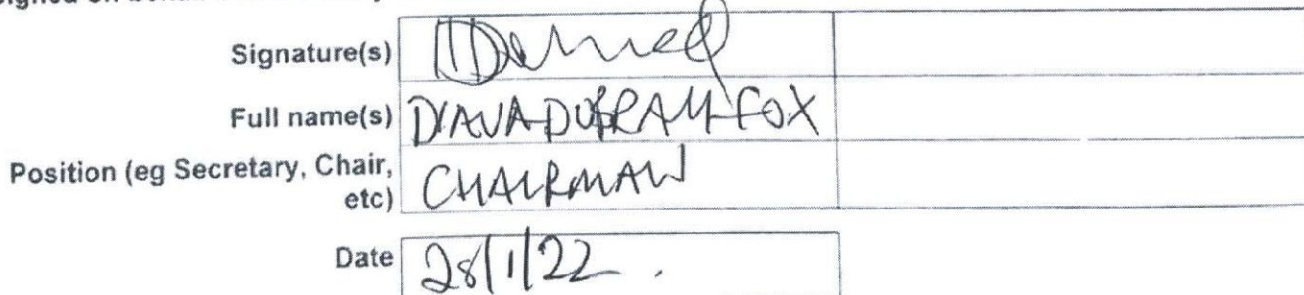 Signature(s)
Full name(s) DIANA DURRANT FOX
Position (eg Secretary, Chair,
etc) CHAIRMAN
Date 28/1/22 .